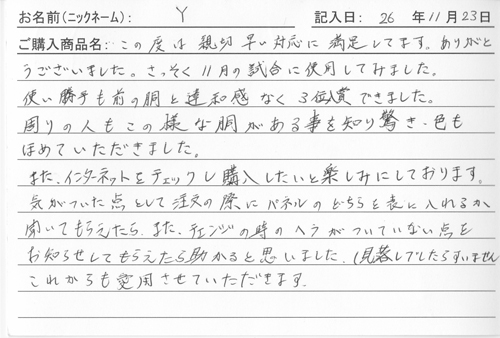 お名前(ニックネーム): Y 記入日: 26 年 11 月 23 日
ご購入商品名: この度は親切早い対応に満足してます。ありがと
うございました。さっそく11月の試合に使用してみました。
使い勝手も前の胴と違和感なく3位入賞できました。
周りの人もこの様な胴がある事を知り驚き、色も
ほめていただきました。
また、インターネットをチェックし購入したいと楽しみにしております。
気がついた点として注文の際にパネルのどちらを表に入れるか
聞いてもらえたら、また、チェンジの時のヘラがついていない点を
お知らせしてもらえたら助かると思いました。(見落としでしたらすいません
これからも愛用させていただきます。